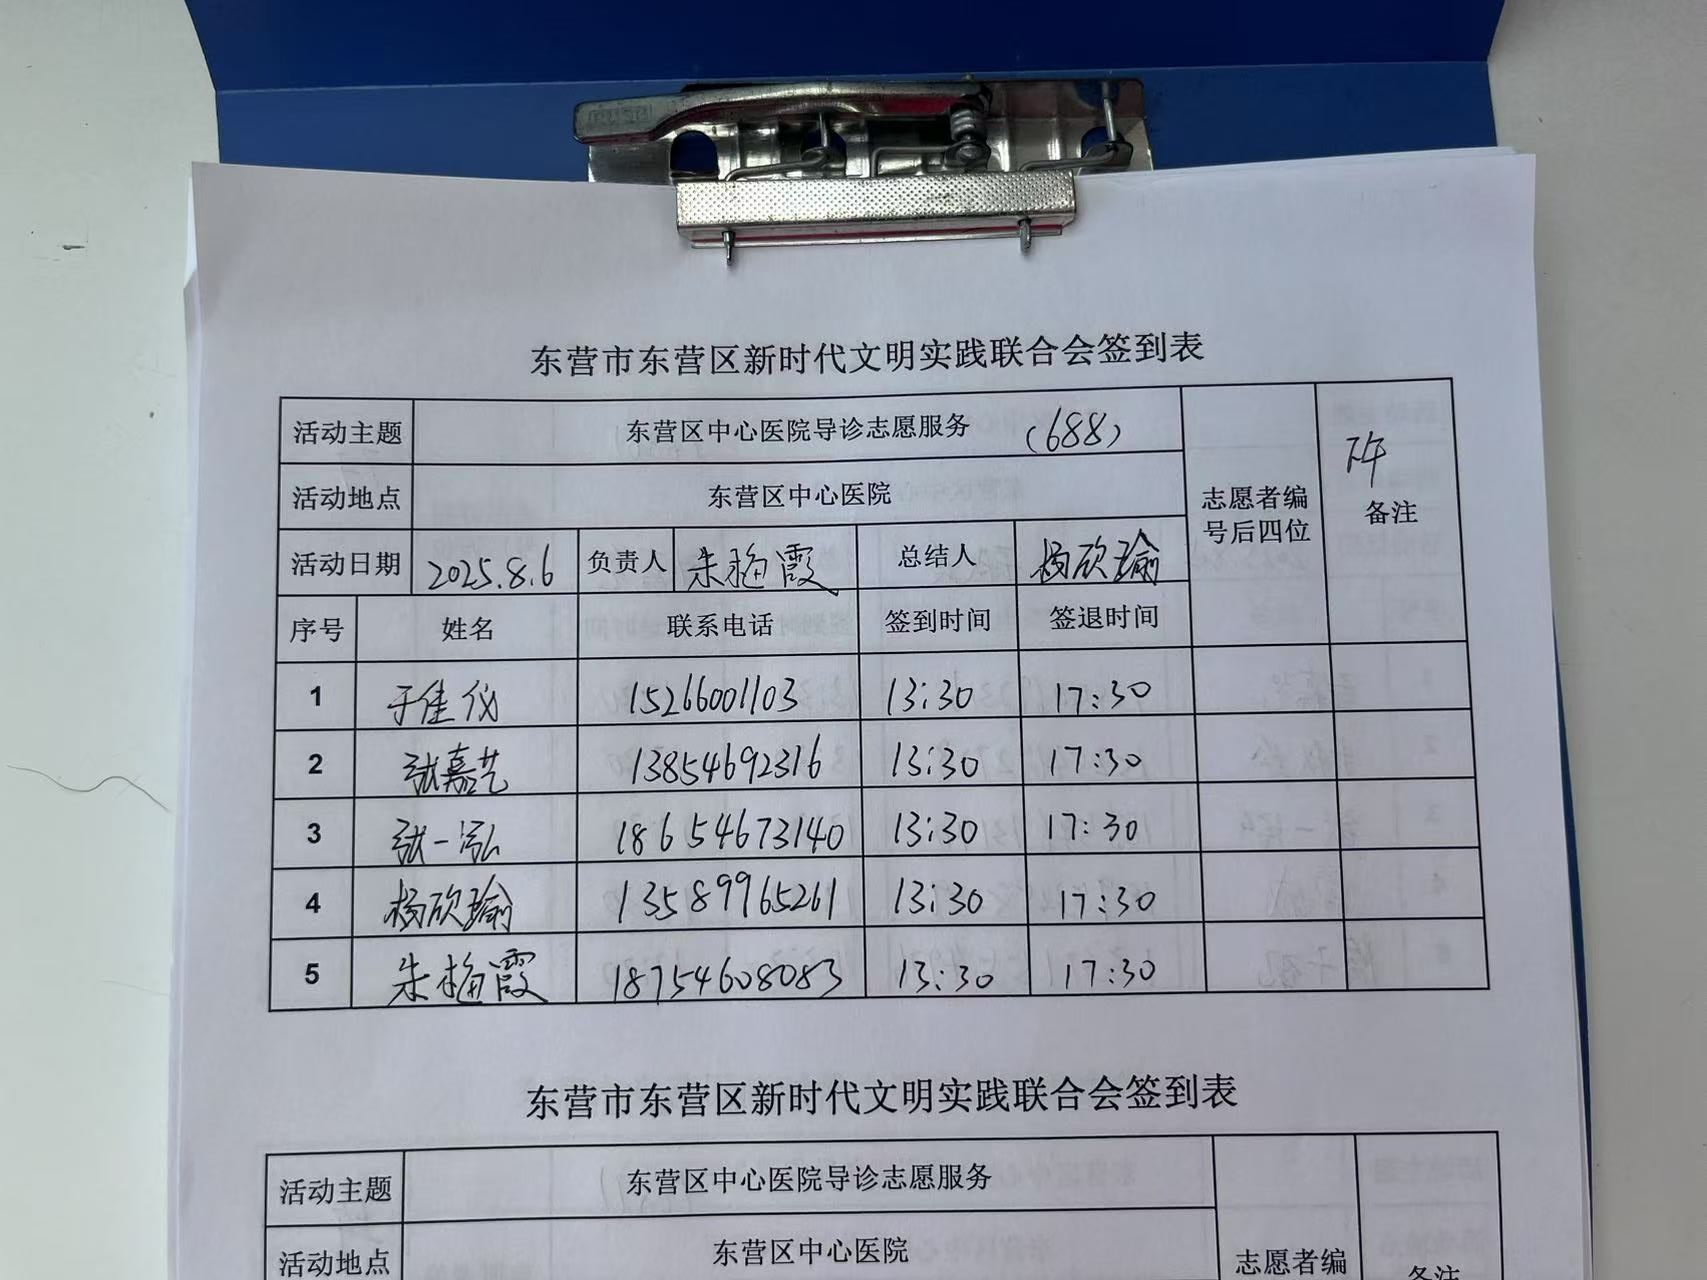 东营市东营区新时代文明实践联合会签到表
活动主题 东营区中心医院导诊志愿服务 (688) 志愿者编号后四位 下午 备注
活动地点 东营区中心医院
活动日期 2025.8.6 负责人 朱梅霞 总结人 杨欣瑜
序号 姓名 联系电话 签到时间 签退时间
1 于佳仪 15266001103 13:30 17:30
2 张嘉艺 13854692316 13:30 17:30
3 张一泓 18654673140 13:30 17:30
4 杨欣瑜 13589965261 13:30 17:30
5 朱梅霞 18754608083 13:30 17:30
东营市东营区新时代文明实践联合会签到表
活动主题 东营区中心医院导诊志愿服务
活动地点 东营区中心医院 志愿者编 备注